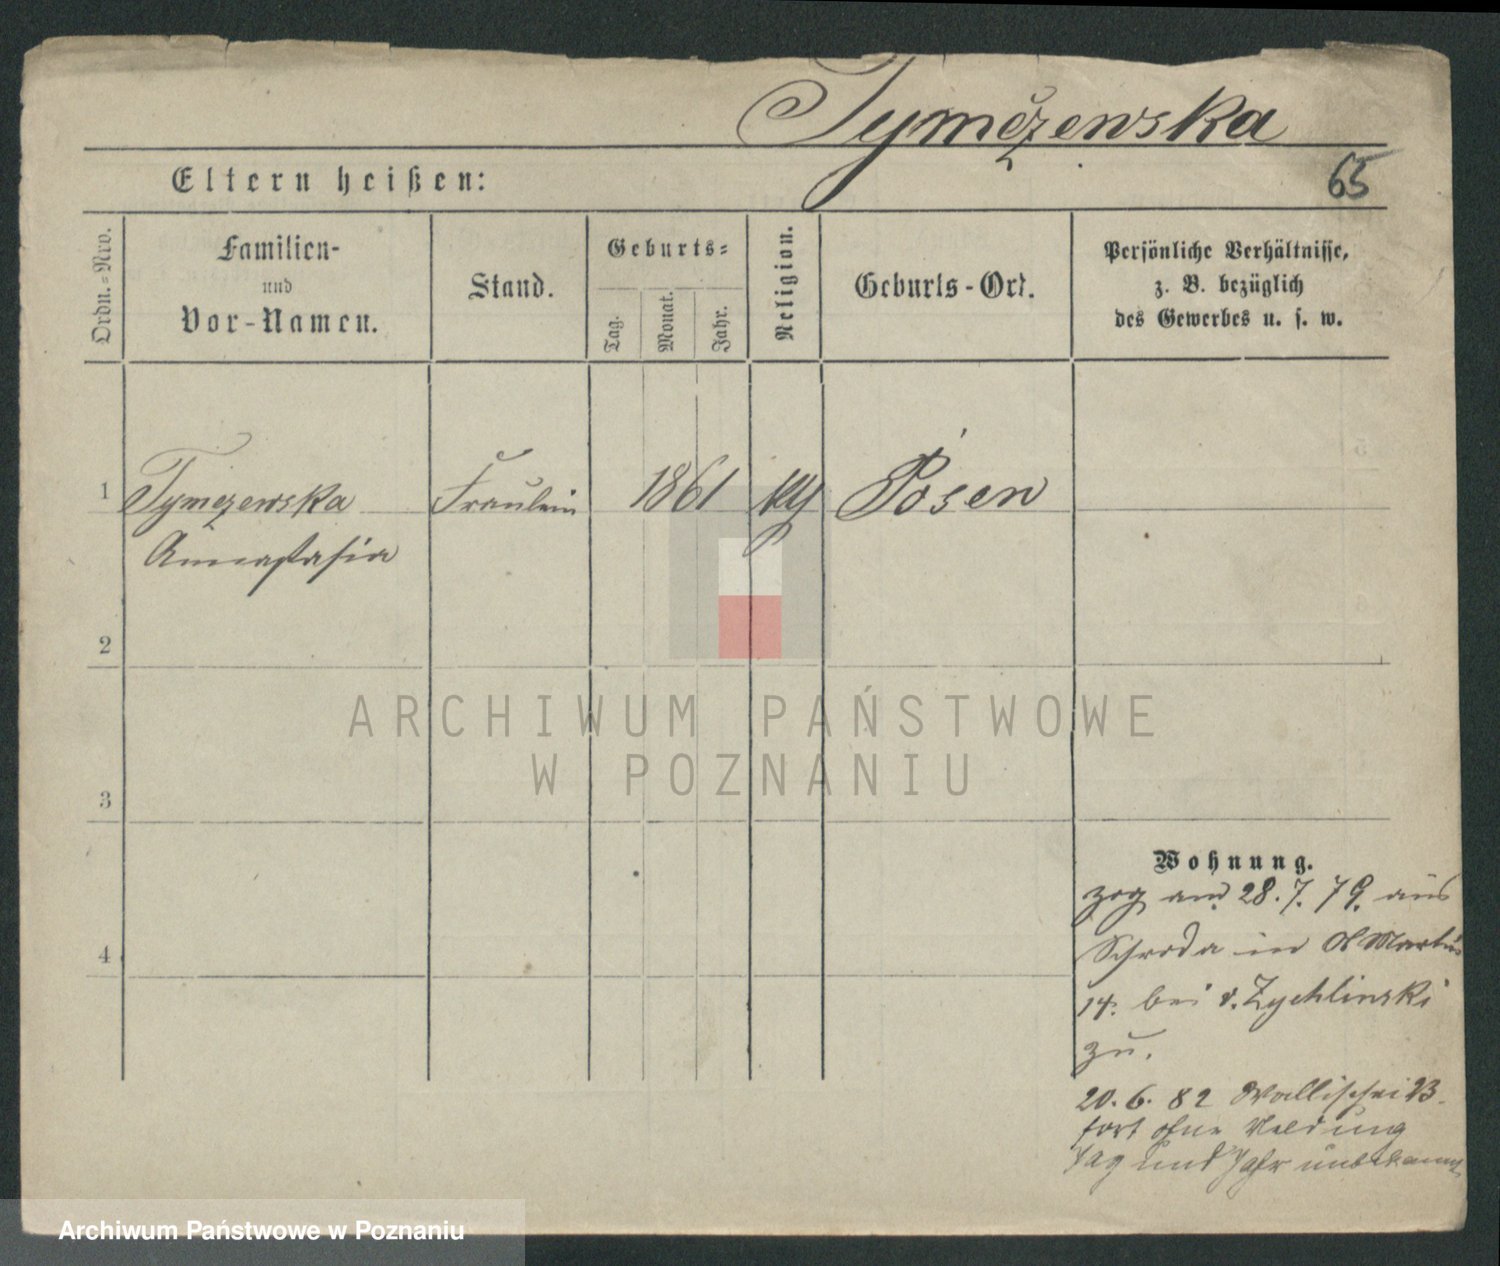 Tymczewska
65
Eltern heißen:
Ordn.=Nro.
Familien-
und
Vor-Namen.
Stand.
Geburts=
Tag.
Monat.
Jahr.
Religion.
Geburts-Ort.
Persönliche Verhältnisse,
z. B. bezüglich
des Gewerbes u. s. w.
1
Tymczewska
Annastasia
Fraulein
1861
Posen
2
3
4
Wohnung.
zog am 28. 7. 79. aus
Schroda in St Martin
14. bei v. Zychlinski
zu.
20. 6. 82 Wallischei
fort ohne Meldung
Tag und Jahr unbekannt
ARCHIWUM PAŃSTWOWE
W POZNANIU
Archiwum Państwowe w Poznaniu